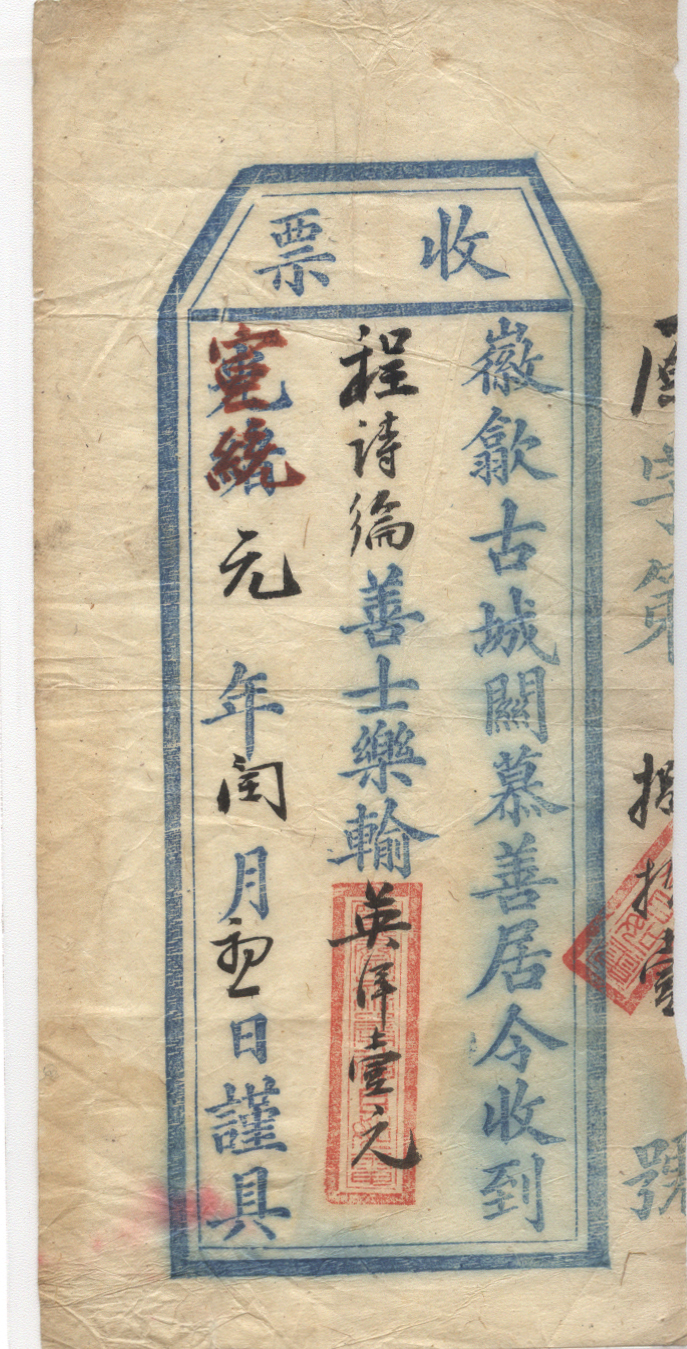 收票
字第拾壹號
徽歙古城關慕善居今收到
程詩綸善士樂輸英洋壹元
宣統元年閏月日謹具